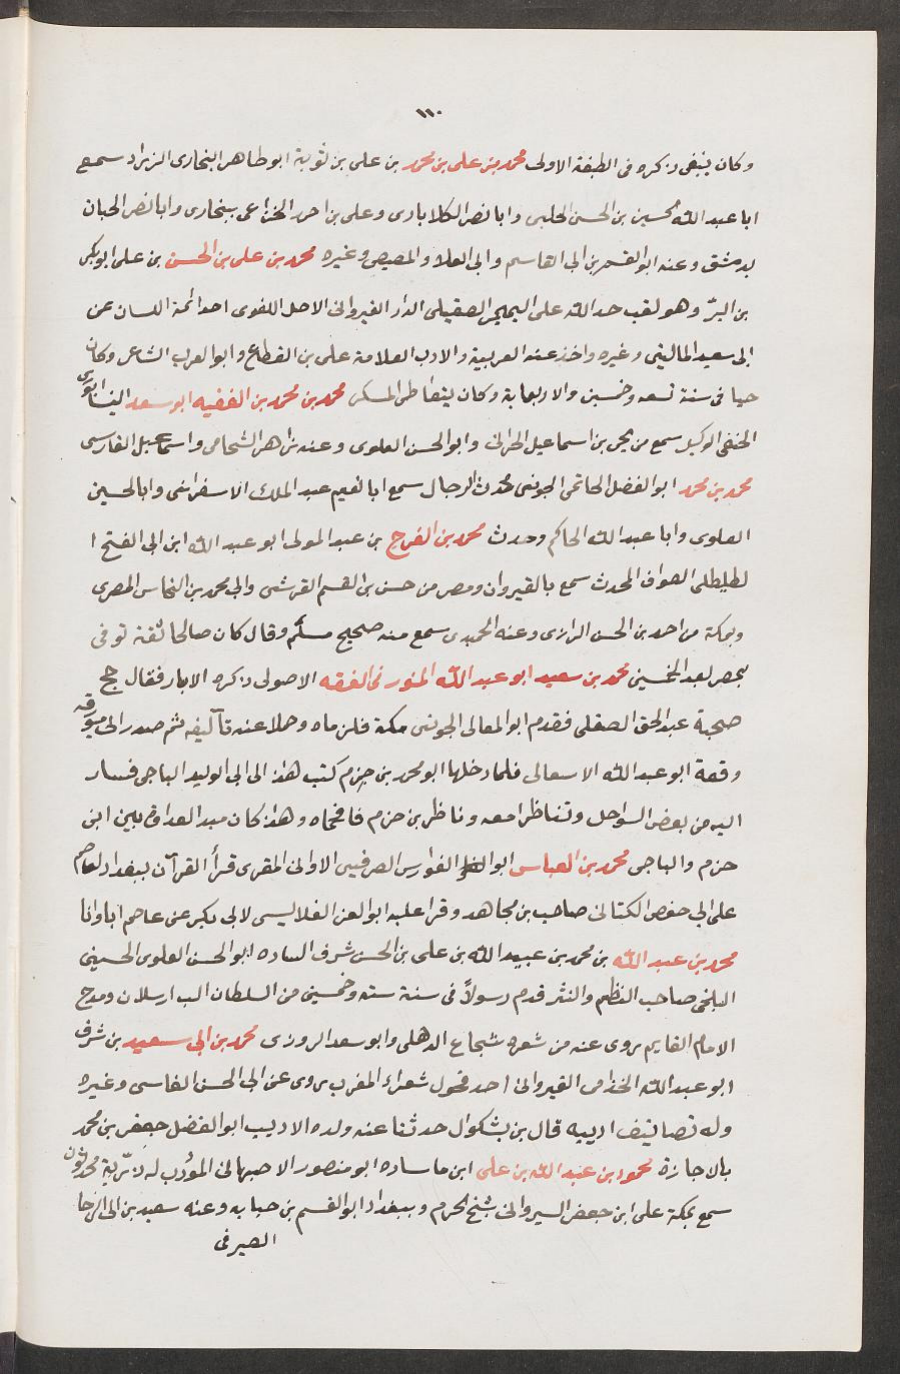 ١١٠
وكان ينبغى ذكره فى الطبقة الاولى محمد بن على بن محمد بن على بن ثوبة ابو طاهر البخارى الزراد سمع
ابا عبد الله الحسين بن الحسن الحلبى وابا نصر الكلابادى وعلى بن احمد الخزاعى ببخارى وابا نصر الحبان
بدمشق وعنه ابو القسم بن ابى القاسم وابى العلا والمصيصى وغيره محمد بن على بن الحسن بن على ابو بكر
بن البر وهو لقب جد الله على التميمى الصقيلى الدار القيروانى الاصل اللغوى احد ائمة اللسان عن
ابى سعيد المالينى وغيره واخذ عنه العربية والادب العلامة على بن القطاع وابو العرب الشاعر وكان
حيا فى سنة تسعه وخمسين والاربعاية وكان يتعاطى المسكر محمد بن محمد بن الفقيه ابو سعد النيسابورى
الحنفى الوكيل سمع من يحى بن اسماعيل الحرانى وابو الحسن العلوى وعنه زاهر الشحامى واسماعيل الفارسى
محمد بن محمد ابو الفضل الحاتمى الجوينى محدث الرجال سمع ابا نعيم عبد الملك الاسفراينى وابا الحسين
العلوى وابا عبد الله الحاكم وحدث محمد بن الفرج بن عبد المولى ابو عبد الله ابن ابى الفتح ا
لطليطلى الصواف المحدث سمع بالقيروان ومصر من حسن بن القسم القرشى وابى محمد بن النحاس المصرى
وبمكة من احمد بن الحسن الرازى وعنه الحميدى سمع منه صحيح مسلم وقال كان صالحا ثقة توفى
بمصر بعد الخمسين محمد بن سعيد ابو عبد الله المنور فى الفقه الاصولى ذكره الابار فقال حج
صحبة عبد الحق الصقلى فقدم ابو المعالى الجوينى مكة فلزماه وحملا عنه تآليفه ثم صدر الى ميورقه
وقعة ابو عبد الله الاسعالى فلما دخلها ابو محمد بن حزم كتب هذا الى ابى الوليد الباجى فسار
اليه من بعض السواحل وتناظرا معه وناظر بن حزم فافحماه وهذا كان مبدا العداوة بين ابن
حزم والباجى محمد بن العباس ابو الفوارس الصرفيى الاوانى المقرى قرأ القرآن ببغداد لعاصم
على ابى حفص الكتانى صاحب بن مجاهد وقرا عليه ابو العز القلانيسى لابى بكر عن عاصم اباوانا
محمد بن عبد الله بن محمد بن عبيد الله بن على بن الحسن شرف الساده ابو الحسن العلوى الحسينى
البلخى صاحب النظم والنثر قدم رسولاً فى سنة سته وخمسين من السلطان الب ارسلان ومدح
الامام القايم روى عنه من شعره شجاع الدهلى وابو سعد الروزى محمد بن ابى سعيد بن شرف
ابو عبد الله الخذامى القيروانى احد فحول شعراء المغرب روى عن ابى الحسن القابسى وغيره
وله تصانيف اديبه قال بن بشكوال حدثنا عنه ولده الاديب ابو الفضل جعفر بن محمد
بالاجازة محمود بن عبد الله بن على ابن ماساده ابو منصور الاصبهانى المؤدب له ذرية محدثون
سمع بمكة على ابن جعفر السيروانى شيخ الحرم وببغداد ابو القسم بن حبابه وعنه سعيد بن ابى الرجا
الصيرفى